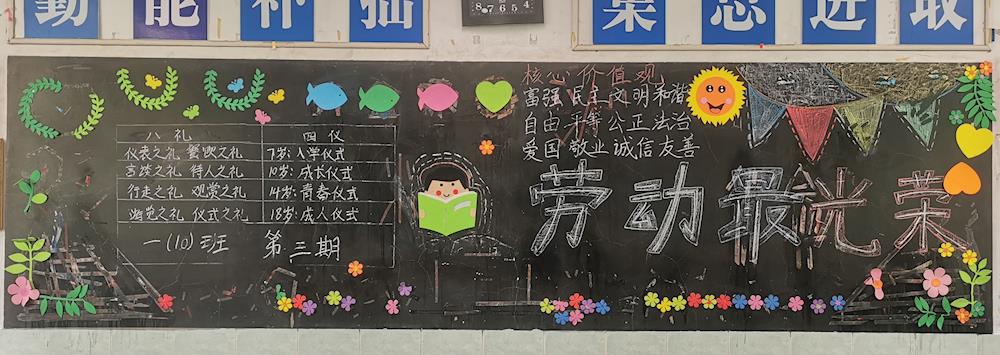 勤 能 补 拙
集 思 进 取
核心价值观
富强 民主 文明 和谐
自由 平等 公正 法治
爱国 敬业 诚信 友善
八礼 四仪
仪表之礼 餐饮之礼 7岁:入学仪式
言谈之礼 待人之礼 10岁:成长仪式
行走之礼 观赏之礼 14岁:青春仪式
游览之礼 仪式之礼 18岁:成人仪式
一(10)班 第三期
劳动最光荣